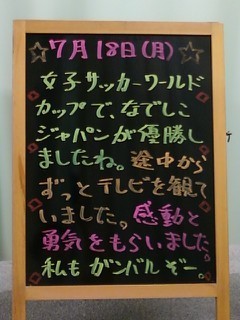 ☆7月18日(月)☆
女子サッカーワールド
カップで、なでしこ
ジャパンが優勝し
ましたね。途中から
ずっとテレビを観て
いました。感動と
勇気をもらいました。
私もガンバルぞー。